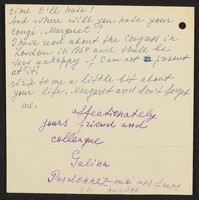 time I'll have!
And where will you have your
congé, Margaret?
I have read about the Congress in
London in 1964 and shall be
very unhappy if I am not present
at it!
Write to me a little bit about
your life, Margaret and don't forget
me.
affectionately
yours friend and
colleague
Galina
Pardonnez-moi mes fautes